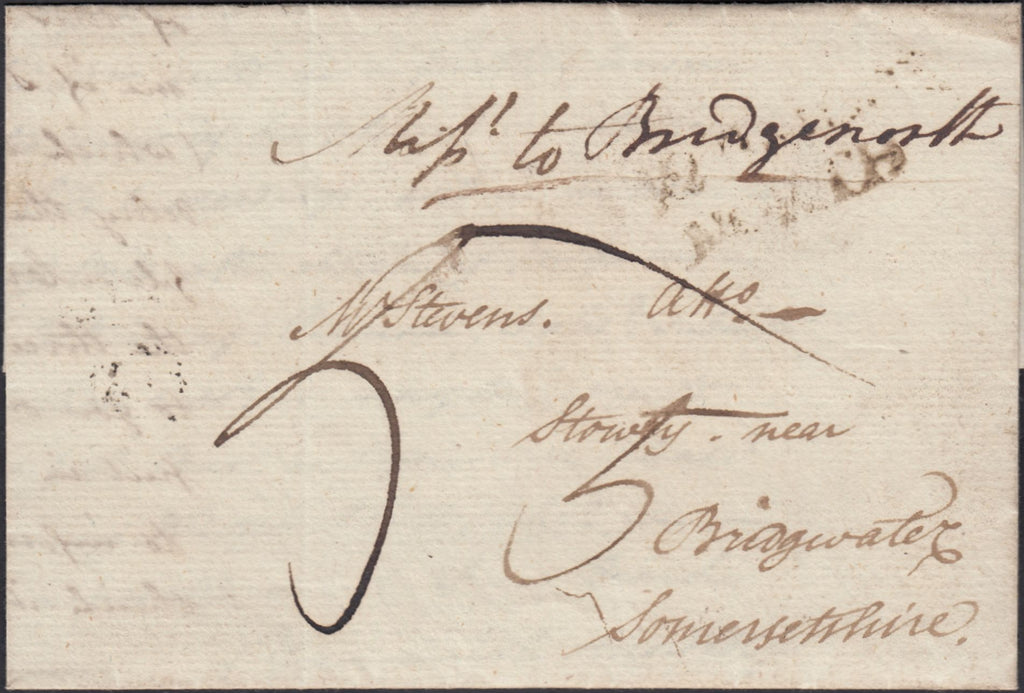 Miſst. to Bridgenorth
Mr Stevens. Atto.
Stowey. near
5 5
Bridgwater
Somersetshire.